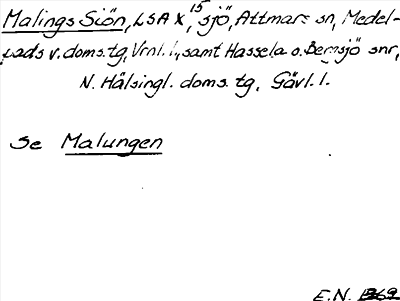 Malings Siön, LSA X, 15 sjö, Attmars sn, Medel-
pads v. doms.tg, Vrnl. l., samt Hassela o. Bergsjö snr,
N. Hälsingl. doms. tg, Gävl. l.
Se Malungen
E.N.